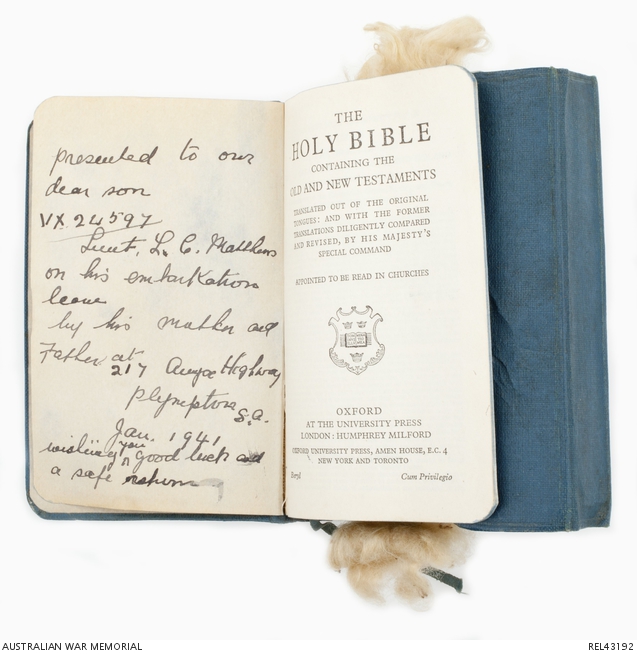 presented to our
dear son
VX 24597
Lieut. L. C. Matthews
on his embarkation
leave
by his mother and
Father at
217 Anzac Highway
Plympton
S.A.
Jan. 1941
wishing you good luck and
a safe return
THE
HOLY BIBLE
CONTAINING THE
OLD AND NEW TESTAMENTS
TRANSLATED OUT OF THE ORIGINAL
TONGUES: AND WITH THE FORMER
TRANSLATIONS DILIGENTLY COMPARED
AND REVISED, BY HIS MAJESTY'S
SPECIAL COMMAND
APPOINTED TO BE READ IN CHURCHES
OXFORD
AT THE UNIVERSITY PRESS
LONDON: HUMPHREY MILFORD
OXFORD UNIVERSITY PRESS, AMEN HOUSE, E.C. 4
NEW YORK AND TORONTO
Beryl Cum Privilegio
AUSTRALIAN WAR MEMORIAL REL43192